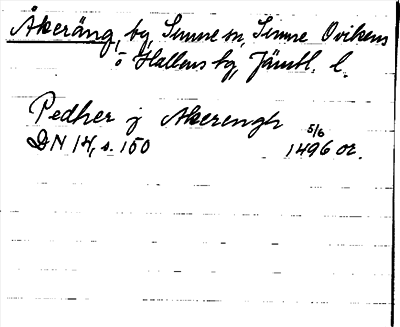 Åkeräng, by, Sunne sn, Sunne Ovikens
o Hallens tg, Jämtl. l.
Pedher j Akerengh
DN 14, s. 150 5/6 1496 or.